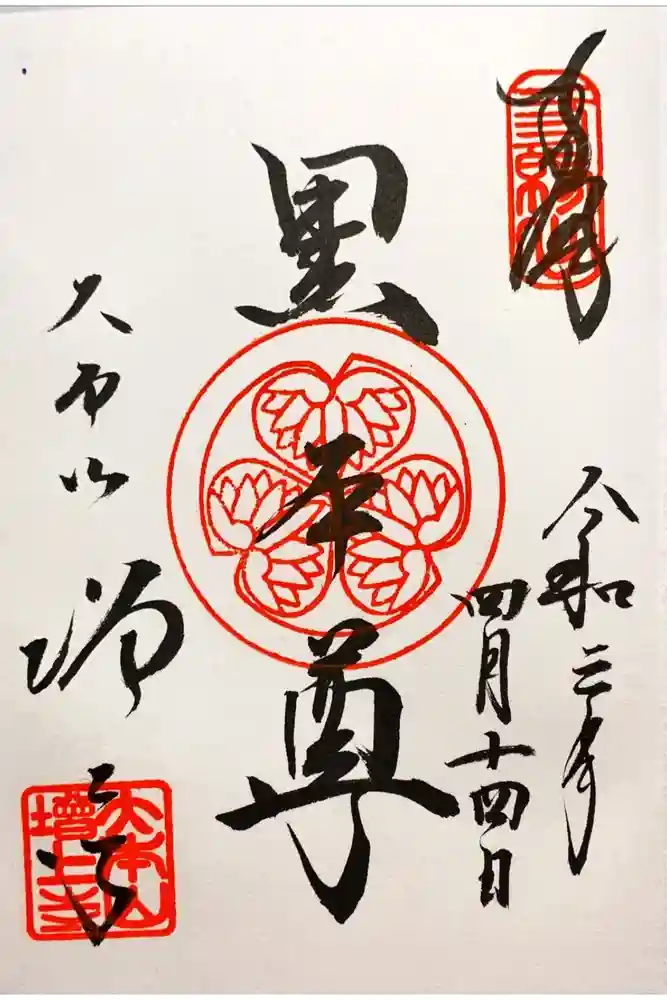 奉拝
令和三年
四月十四日
黒本尊
大本山
増上寺
大本山
増上寺